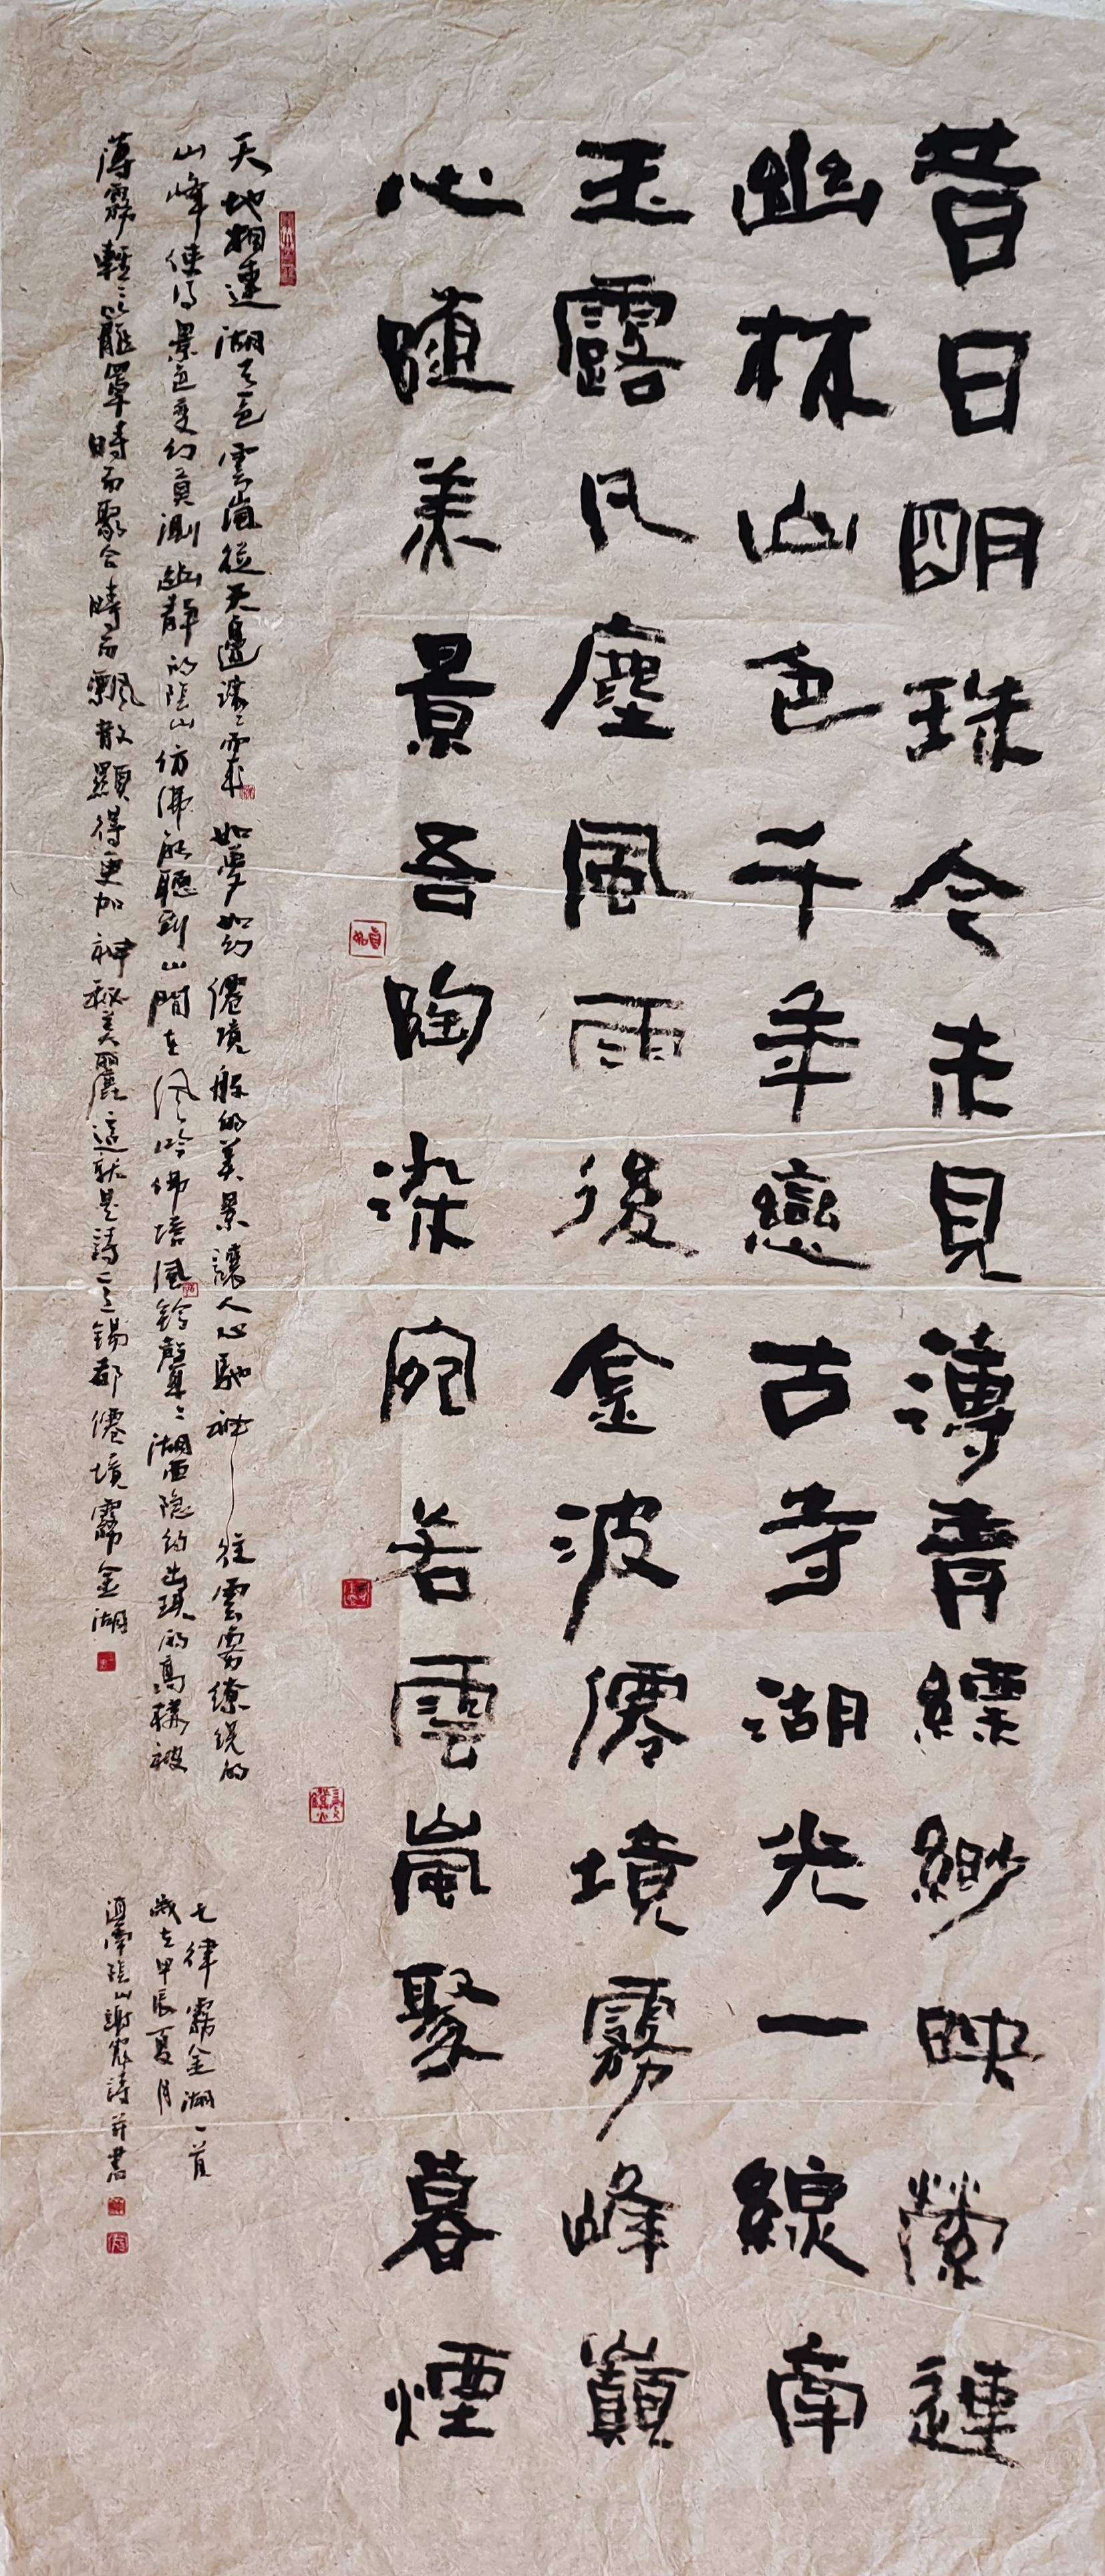 昔日明珠今未見薄青縹緲映縈連
幽林山色千年戀古寺湖光一線南
玉露凡塵風雨後金波僊境霧峰巔
心隨美景吾陶染宛若雲嵐聚暮煙
天地相連湖天一色雲嵐從天邊滾滾而來如夢如幻僊境般的美景讓人心馳神往雲霧繚绕的
山峰使得景色变幻莫測幽静的陰山仿佛能聽到山間在風吟佛塔風鈴聲聲湖面隐约出現的高樓被
薄霧輕輕籠罩時而聚合時而飄散顯得更加神秘美麗這就是詩意錫都僊境霧金湖
七律霧金湖一首
歲在甲辰夏月
滇南陰山謝詩并書
真如